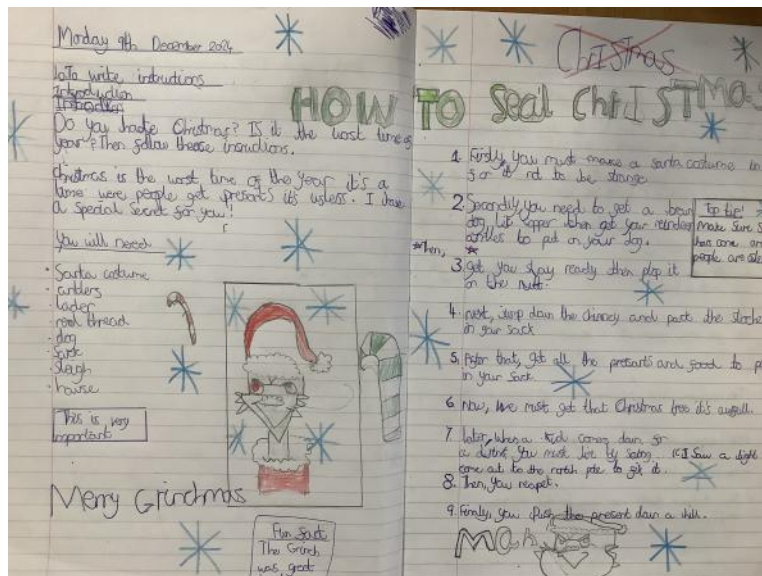 Monday 9th December 2024
LoTo write instructions
Introduction
Introduction
HOW TO Seal ChrISTMas
Do you haate Christmas? Is it the wost time of
year? Then follow theese insructions.
Christmas is the worst time of the year it's a
time were people get presants it's usless. I have
a special secret for you!
You will need
Santa costume
antlers
lader
red thread
dog
Sack
Sleagh
house
This is very
important
Merry Grinchmas
Fun fact
The Grinch
was great
ChrISTmas
1. Firstly, you must make a santa costume
2. Secondly you need to get a
dog, then get your
to put on your dog.
Then,
Top tie!
Make Sure
people are
3. get you ready then plop it
on the
4. next, jump down the chimney and pack the
in your sack
5. After that, get all the presants and good to
in your sack.
6. Now, we must get that Christmas tree it's
7. later, when a kid coming down for
a drink you must lie by saing I Saw a light
come out to the north pole to it.
8. Then, you reapet.
9. Finally, you push the present down a hill.